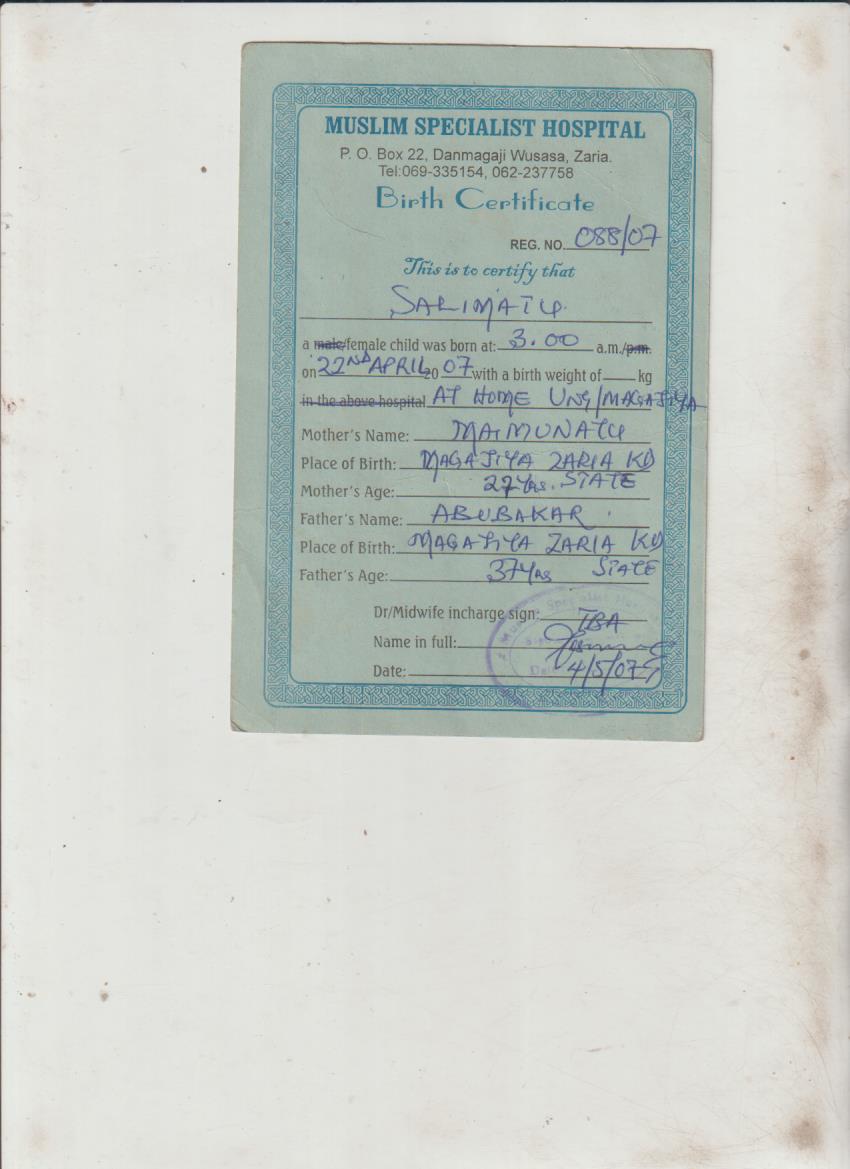 MUSLIM SPECIALIST HOSPITAL
P. O. Box 22, Danmagaji Wusasa, Zaria.
Tel:069-335154, 062-237758
Birth Certificate
REG. NO. 088/07
This is to certify that
SALIMATU
a male/female child was born at: 3.00 a.m./p.m.
on 22ND APRIL 2007 with a birth weight of kg
in the above hospital AT HOME UNG/MAGAJIYA
Mother's Name: MAIMUNATU
Place of Birth: MAGAJIYA ZARIA KD
Mother's Age: 27yrs. STATE
Father's Name: ABUBAKAR
Place of Birth: MAGAJIYA ZARIA KD
Father's Age: 37yrs STATE
Dr/Midwife incharge sign: TBA
Name in full:
Date: 4/5/07
Muslim Specialist